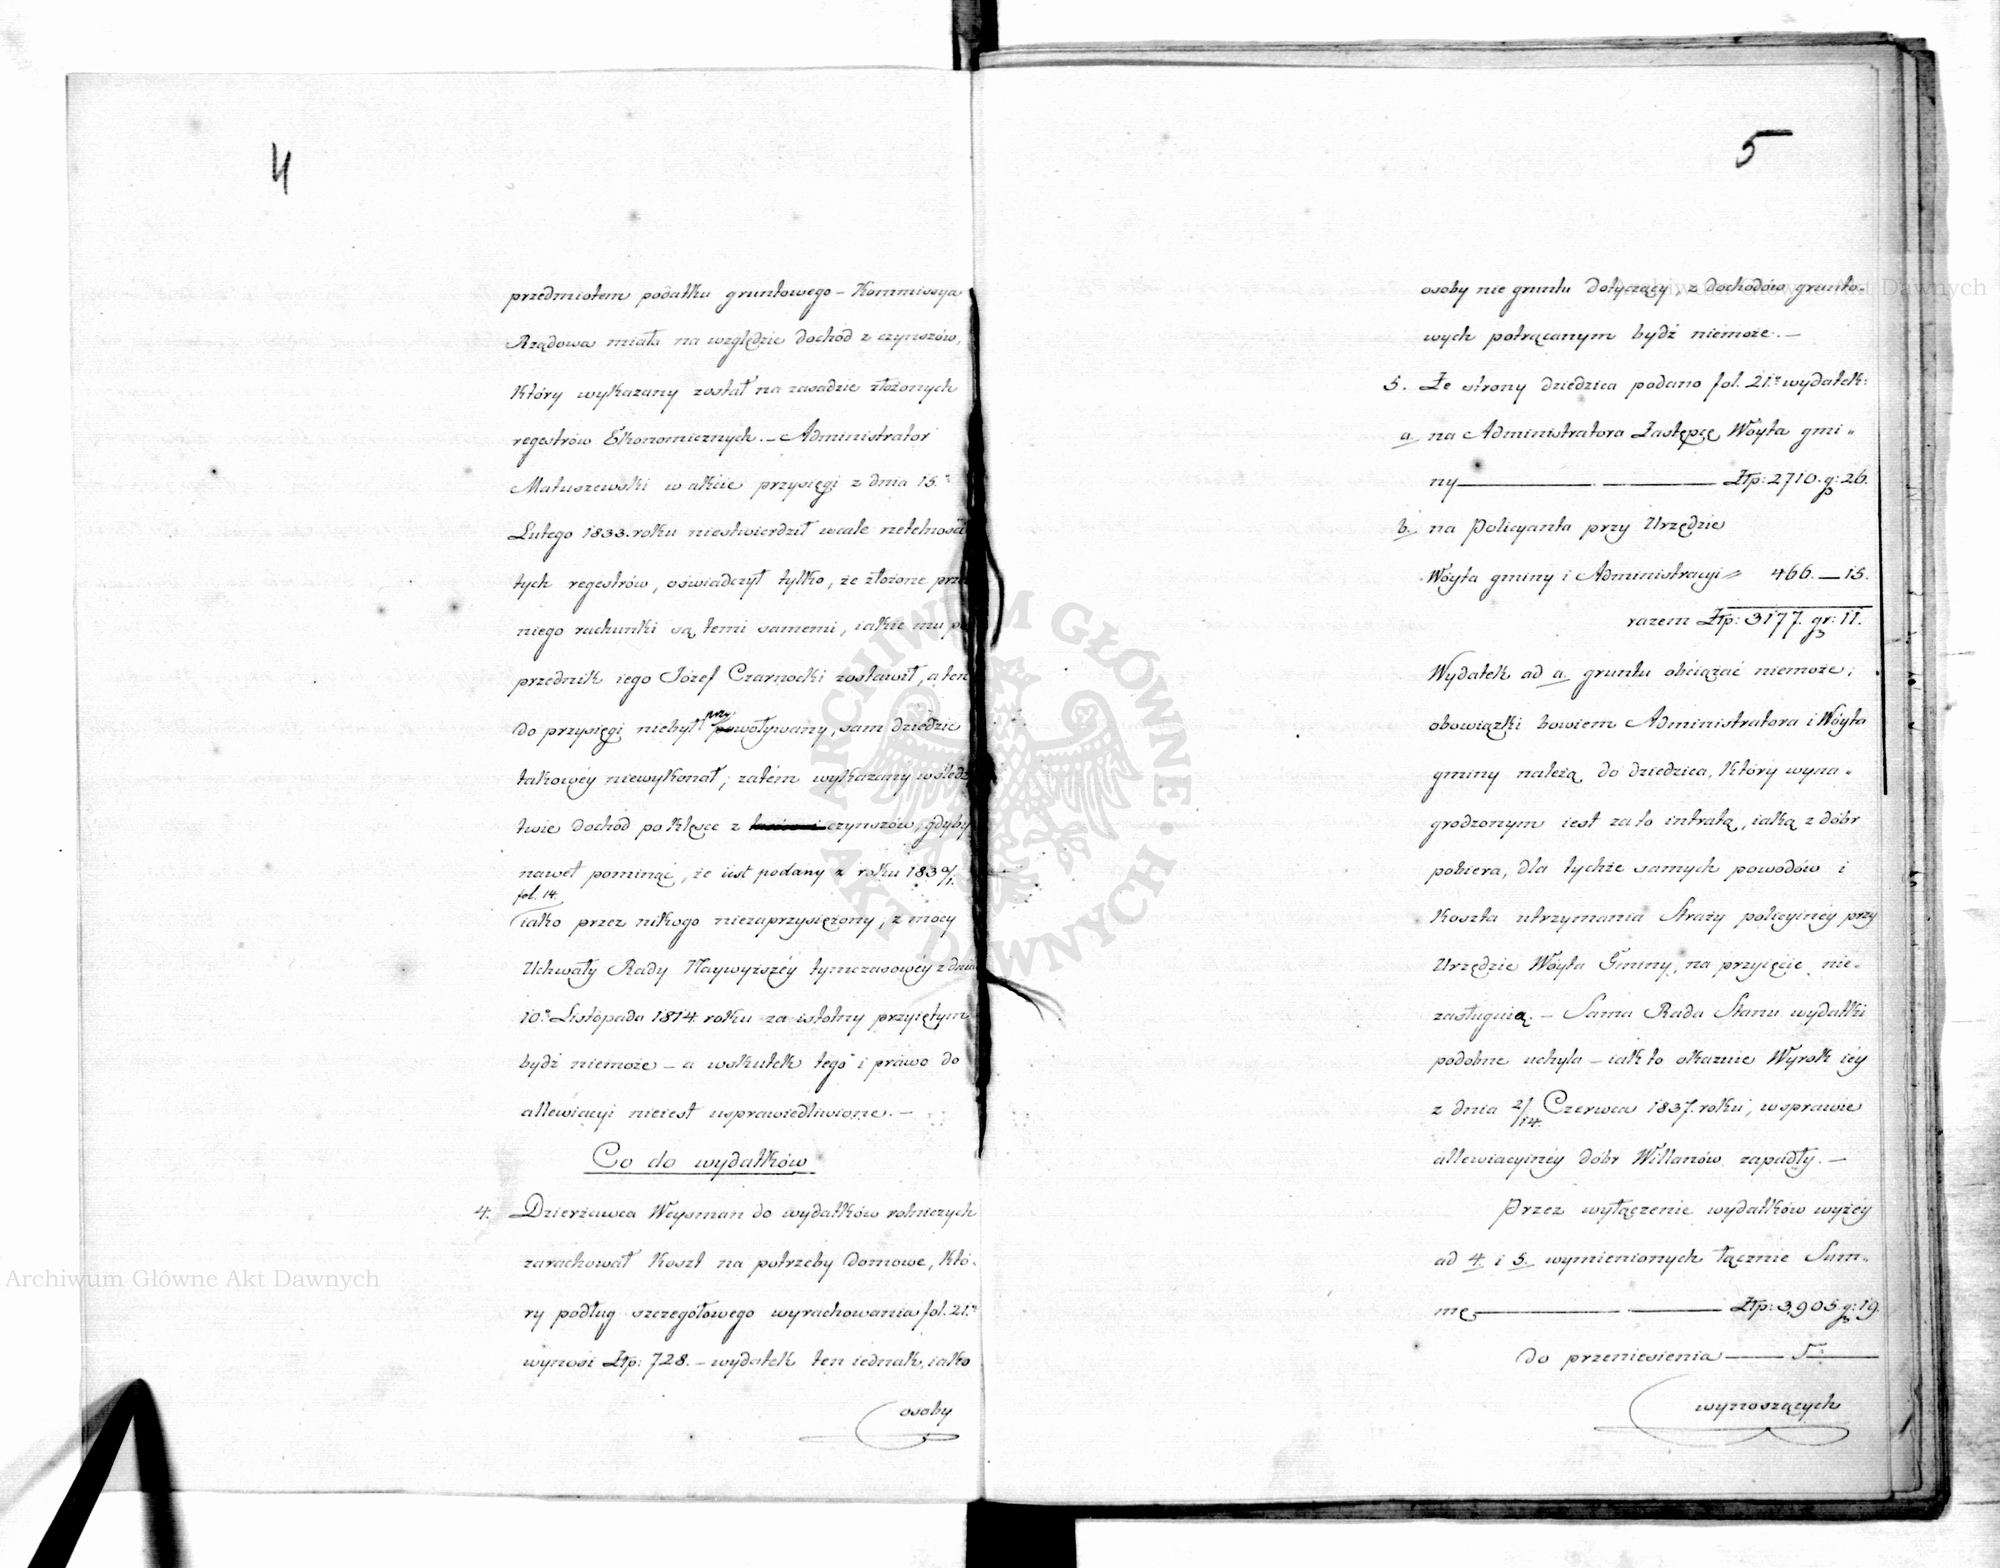 4
przedmiotem podatku gruntowego – Kommissya
Rządowa miała na względzie dochód z czynszów,
który wykazany został na zasadzie złożonych
regestrów Ekonomicznych. – Administrator
Matuszewski w akcie przysięgi z dnia 15.
Lutego 1833. roku niestwierdził wcale rzetelności
tych regestrów, oświadczył tylko, że złożone prze
niego rachunki są temi samemi, iakie mu po
przednik iego Józef Czarnocki zostawił, a ten
do przysięgi niebył przywoływany, sam dziedzic
takowéy niewykonał; zatém wykazany w śledz
twie dochód po klęsce z czynszów, gdyby
nawet pominąć, że iest podany z roku 1830/1.
fol. 14.
iako przez nikogo niezaprzysiężony, z mocy
Uchwały Rady Naywyższéy tymczasowéy z dnia
10. Listopada 1814. roku za istotny przyiętym
bydź niemoże – a wskutek tego i prawo do
allewiacyi nieiest usprawiedliwione. –
Co do wydatków
4. Dzierżawca Weysman do wydatków rolniczych
zarachował koszt na potrzeby domowe, któ-
ry podług szczegółowego wyrachowania fol. 21.
wynosi Złp: 728. – wydatek ten iednak, iako
osoby
5
osoby nie gruntu dotyczący, z dochodów grunto-
wych potrącanym bydź niemoże. –
5. Ze strony dziedzica podano fol. 21. wydatek:
a. na Administratora Zastępcę Wóyta gmi-
ny Złp: 2710. g: 26.
b. na Policyanta przy Urzędzie
Wóyta gminy i Administracyi " 466. – 15.
razem Złp: 3177. gr: 11.
Wydatek ad a. gruntu obciążać niemoże;
obowiązki bowiem Administratora i Wóyta
gminy należą do dziedzica, który wyna-
grodzonym iest za to intratą, iaką z dóbr
pobiera, dla tychże samych powodów i
koszta utrzymania Straży policyinéy przy
Urzędzie Wóyta Gminy, na przyięcie nie-
zasługuią. – Sama Rada Stanu wydatki
podobne uchyla – iak to okazuie Wyrok iéy
z dnia 2/14. Czerwca 1837. roku, w sprawie
allewiacyinéy dóbr Willanów zapadły. –
Przez wyłączenie wydatków wyżéy
ad 4. i 5. wymienionych łącznie Sum-
mę Złp: 3,905 g: 19.
do przeniesienia
wynoszących
Archiwum Główne Akt Dawnych
Archiwum Główne Akt Dawnych
ARCHIWUM GŁÓWNE AKT DAWNYCH